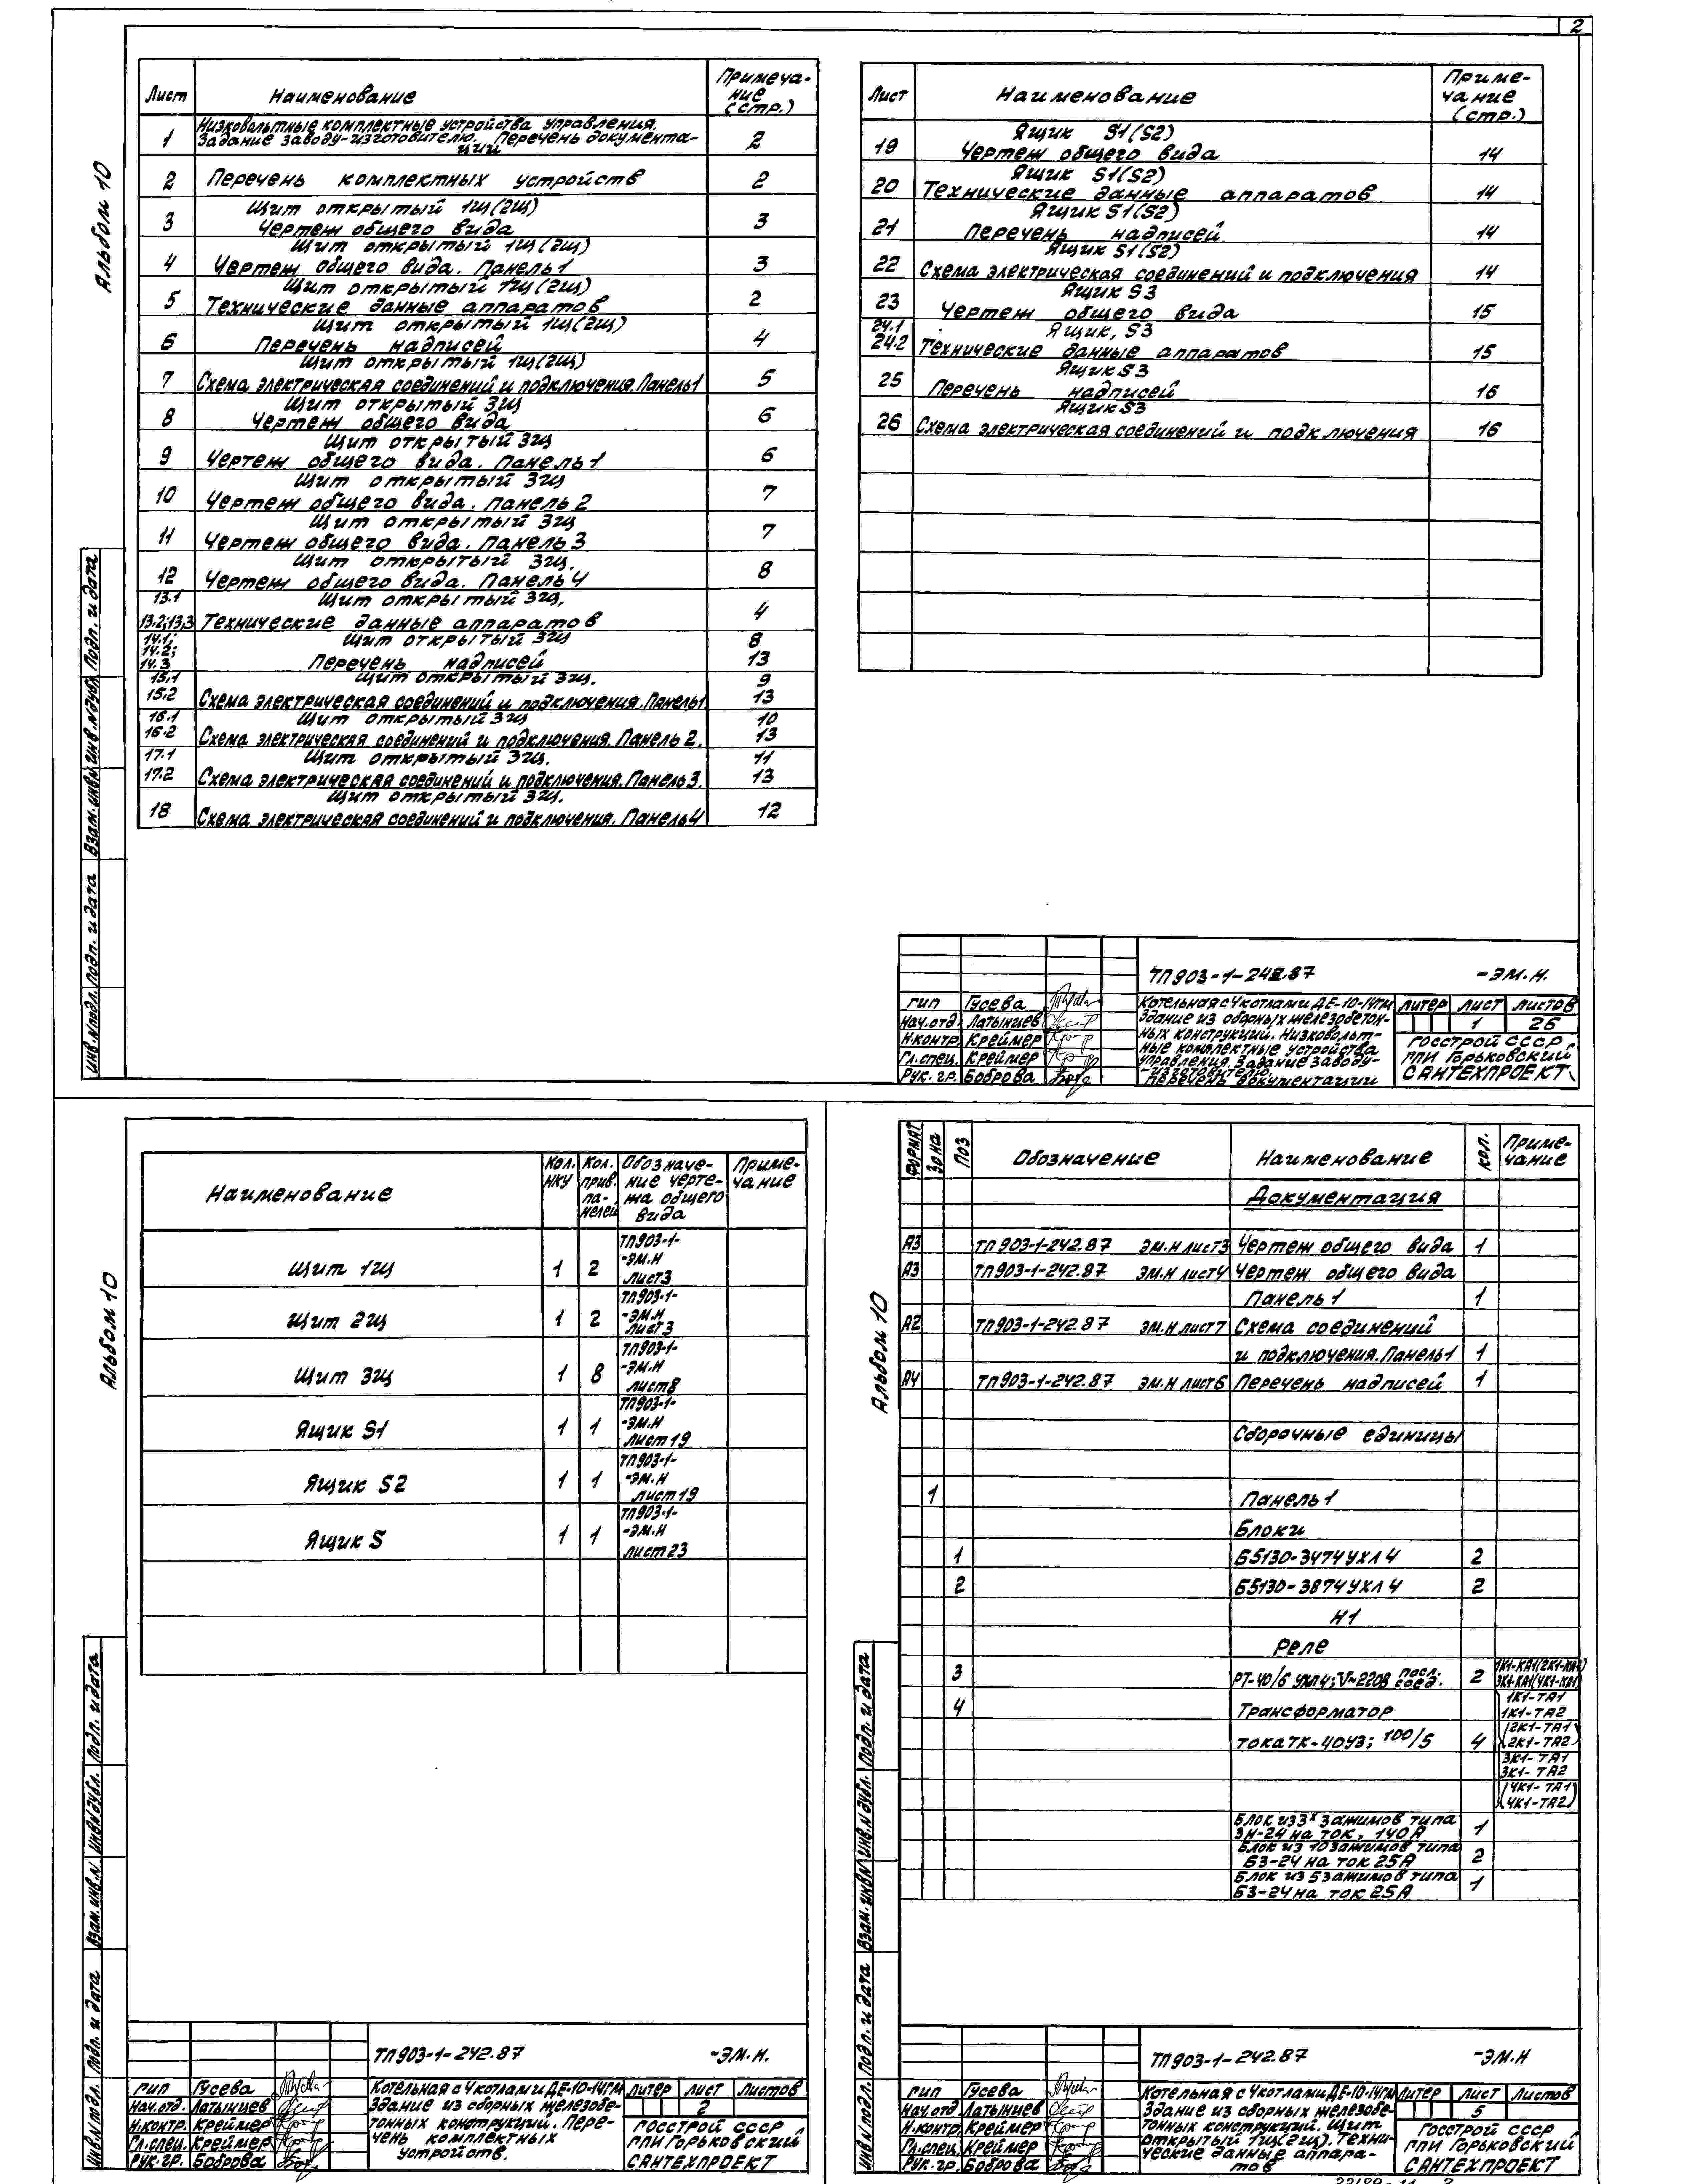 2
Альбом 10
Лист Наименование Примеча-
ние
(стр.)
1 Низковольтные комплектные устройства управления.
Задание заводу-изготовителю. Перечень документа-
ции 2
2 Перечень комплектных устройств 2
Щит открытый 1Щ(2Щ)
3 Чертеж общего вида 3
Щит открытый 1Щ(2Щ)
4 Чертеж общего вида. Панель 1 3
Щит открытый 1Щ(2Щ)
5 Технические данные аппаратов 2
Щит открытый 1Щ(2Щ)
6 Перечень надписей 4
Щит открытый 1Щ(2Щ)
7 Схема электрическая соединений и подключения. Панель 1 5
Щит открытый 3Щ
8 Чертеж общего вида 6
Щит открытый 3Щ
9 Чертеж общего вида. Панель 1 6
Щит открытый 3Щ
10 Чертеж общего вида. Панель 2 7
Щит открытый 3Щ
11 Чертеж общего вида. Панель 3 7
Щит открытый 3Щ.
12 Чертеж общего вида. Панель 4 8
13.1 Щит открытый 3Щ,
13.2;13.3 Технические данные аппаратов 4
14.1; Щит открытый 3Щ 8
14.2;
14.3 Перечень надписей 13
15.1 Щит открытый 3Щ. 9
15.2 Схема электрическая соединений и подключения. Панель 1. 13
16.1 Щит открытый 3Щ 10
16.2 Схема электрическая соединений и подключения. Панель 2. 13
17.1 Щит открытый 3Щ. 11
17.2 Схема электрическая соединений и подключения. Панель 3. 13
Щит открытый 3Щ.
18 Схема электрическая соединений и подключения. Панель 4 12
Лист Наименование Приме-
чание
(стр.)
Ящик S1(S2)
19 Чертеж общего вида 14
Ящик S1(S2)
20 Технические данные аппаратов 14
Ящик S1(S2)
21 Перечень надписей 14
Ящик S1(S2)
22 Схема электрическая соединений и подключения 14
Ящик S3
23 Чертеж общего вида 15
24.1 Ящик, S3
24.2 Технические данные аппаратов 15
Ящик S3
25 Перечень надписей 16
Ящик S3
26 Схема электрическая соединений и подключения 16
Инв.№подл. Подп. и дата Взам.инв№ Инв.№дубл. Подп. и дата
ТП903-1-242.87 -ЭМ.Н.
ГИП Гусева
Нач.отд. Латынцев
Н.контр. Креймер
Гл.спец. Креймер
Рук.гр. Боброва
Котельная с 4 котлами ДЕ-10-14ГМ
Здание из сборных железобетон-
ных конструкций. Низковольт-
ные комплектные устройства
управления. Задание заводу-
-изготовителю.
Перечень документации
Литер Лист Листов
1 26
Госстрой СССР
ГПИ Горьковский
САНТЕХПРОЕКТ
Альбом 10
Наименование
Кол.
НКУ
Кол.
прив.
па-
нелей
Обозначе-
ние черте-
жа общего
вида
Приме-
чание
Щит 1Щ 1 2 ТП903-1-
-ЭМ.Н
лист3
Щит 2Щ 1 2 ТП903-1-
-ЭМ.Н
лист3
Щит 3Щ 1 8 ТП903-1-
-ЭМ.Н
лист8
Ящик S1 1 1 ТП903-1-
-ЭМ.Н
лист19
Ящик S2 1 1 ТП903-1-
-ЭМ.Н
лист19
Ящик S 1 1 ТП903-1-
-ЭМ.Н
лист23
Инв.№подл. Подп. и дата Взам.инв.№ Инв№дубл. Подп. и дата
ТП903-1-242.87 -ЭМ.Н.
ГИП Гусева
Нач.отд. Латынцев
Н.контр. Креймер
Гл.спец. Креймер
Рук.гр. Боброва
Котельная с 4 котлами ДЕ-10-14ГМ
Здание из сборных железобе-
тонных конструкций. Пере-
чень комплектных
устройств.
Литер Лист Листов
2
Госстрой СССР
ГПИ Горьковский
САНТЕХПРОЕКТ
Альбом 10
Формат Зона Поз Обозначение Наименование Кол. Приме-
чание
Документация
А3 ТП903-1-242.87 ЭМ.Н лист3 Чертеж общего вида 1
А3 ТП903-1-242.87 ЭМ.Н лист4 Чертеж общего вида
Панель 1 1
А2 ТП903-1-242.87 ЭМ.Н лист7 Схема соединений
и подключения. Панель 1 1
А4 ТП903-1-242.87 ЭМ.Н лист6 Перечень надписей 1
Сборочные единицы
1 Панель 1
Блоки
1 Б5130-3474УХЛ4 2
2 Б5130-3874УХЛ4 2
Н1
Реле
3 РТ-40/6 УХЛ4; V~220В посл. соед. 2 1К1-КА1(2К1-КА1)
3К1-КА1(4К1-КА1)
4 Трансформатор 1К1-ТА1
1К1-ТА2
тока ТК-40У3; 100/5 4 (2К1-ТА1
2К1-ТА2)
3К1-ТА1
3К1-ТА2
(4К1-ТА1)
(4К1-ТА2)
Блок из 3х зажимов типа
ЗН-24 на ток, 140А 1
Блок из 10 зажимов типа
БЗ-24 на ток 25А 2
Блок из 5 зажимов типа
БЗ-24 на ток 25А 1
Инв№подл. Подп. и дата Взам.инв№ Инв.№дубл. Подп. и дата
ТП903-1-242.87 -ЭМ.Н
ГИП Гусева
Нач.отд Латынцев
Н.контр Креймер
Гл.спец. Креймер
Рук.гр. Боброва
Котельная с 4 котлами ДЕ-10-14ГМ
Здание из сборных железобе-
тонных конструкций. Щит
открытый 1Щ(2Щ). Техни-
ческие данные аппара-
тов
Литер Лист Листов
5
Госстрой СССР
ГПИ Горьковский
САНТЕХПРОЕКТ